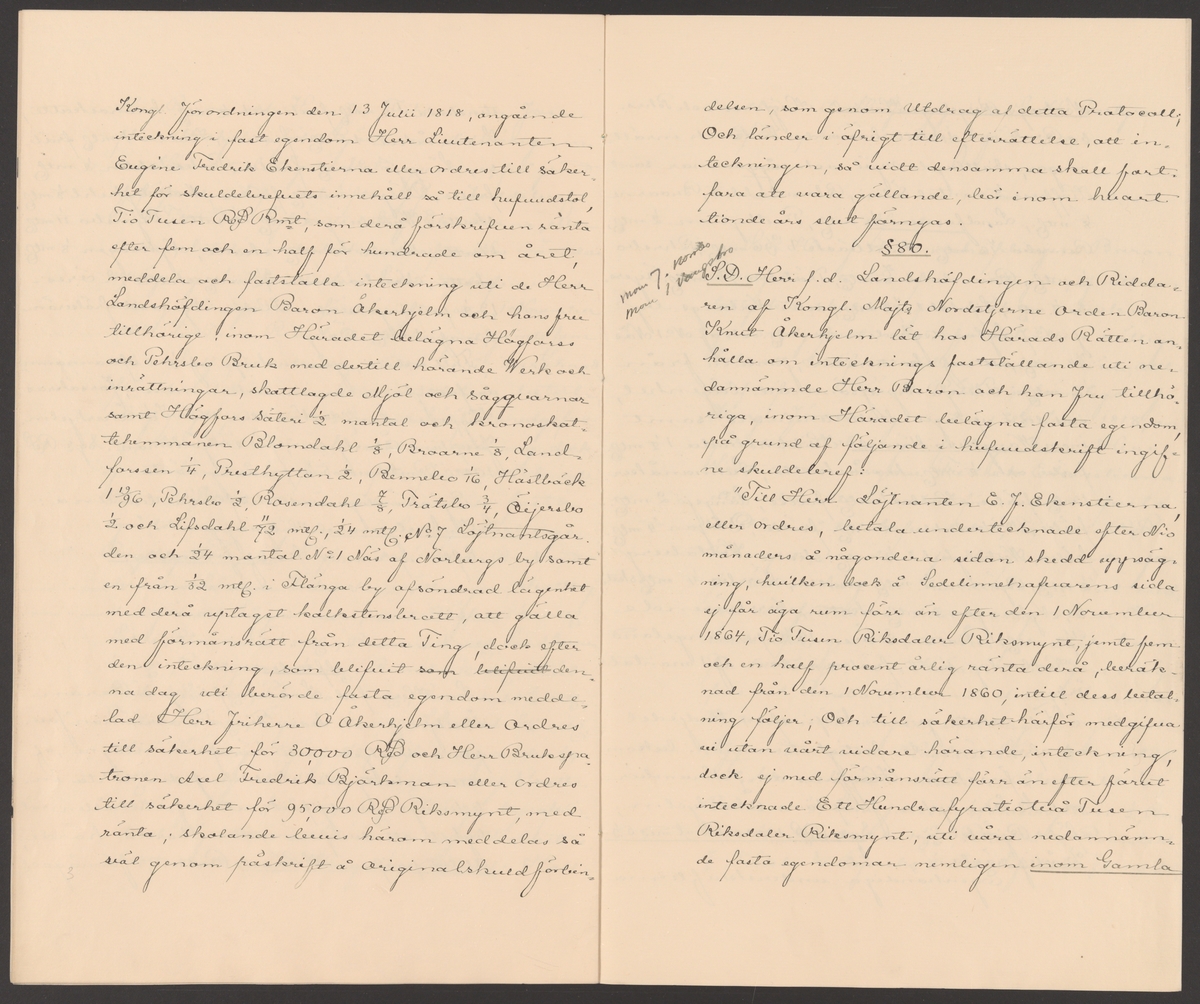 Kongl. Förordningen den 13 Julii 1818, angående
inteckning i fast egendom Herr Lieutenanten
Eugène Fredrik Ekenstierna eller ordres till säker-
het för skuldebrefvets innehåll så till hufvudstol,
Tio Tusen RdR Rmt, som derå förskrifven ränta
efter fem och en half för hundrade om året,
meddela och fastställa inteckning uti de Herr
Landshöfdingen Baron Åkerhjelm och hans fru
tillhörige, inom Häradet belägna Högforss
och Pehrsbo Bruk med dertill hörande Werk och
inrättningar, skattlagde Mjöl och Sågqvarnar
samt Högfors säteri 1/2 mantal och kronoskat-
tehemmanen Blomdahl 1/8, Broarne 1/8, Land-
forssen 1/4, Presthyttan 1/2, Bennebo 1/16, Hästbäck
1 19/96, Pehrsbo 1/2, Rosendahl 7/8, Trätsbo 3/4, Öijersbo
1/2 och Lifsdahl 11/72 mtl, 1/24 mtl No 7 Löjtnantsgår-
den och 1/24 mantal No 1 Näs af Norbergs by samt
en från 1/32 mtl. i Flänga by afsöndrad lägenhet
med derå uptaget kalkstensbrott, att gälla
med förmånsrätt från detta Ting, dock efter
den inteckning, som blifvit som blifvit den-
na dag uti berörde fasta egendom medde-
lad Herr Friherre O Åkerhjelm eller ordres
till säkerhet för 30,000 RdR och Herr Brukspa-
tronen Axel Fredrik Björkman eller ordres
till säkerhet för 95,000 RdR Riksmynt, med
ränta; skolande bevis härom meddelas så
väl genom påskrift å Original skuldförbin-
3
delsen, som genom Utdrag af detta Protocoll;
Och länder i öfrigt till efterrättelse, att in-
teckningen, så vidt densamma skall fort-
fara att vara gällande, bör inom hvart
tionde års slut förnyas.
§ 80.
S.D. Herr f.d. Landshöfdingen och Ridda-
ren af Kongl. Majts Nordstjerne Orden Baron
Knut Åkerhjelm lät hos Härads Rätten an-
hålla om intecknings fastställande uti ne-
dannämnde Herr Baron och han Fru tillhö-
riga, inom Häradet belägna fasta egendom,
på grund af följande i hufvudskrift ingif-
ne skuldebref:
"Till Herr Löjtnanten E. F. Ekenstierna,
eller ordres, betala undertecknade efter Nio
månaders å någondera sidan skedd uppsäg-
ning, hvilken dock å Sedelinnehafvarens sida
ej får äga rum förr än efter den 1 November
1864, Tio Tusen Riksdaler Riksmynt, jemte fem
och en half procent årlig ränta derå, beräk-
nad från den 1 November 1860, intill dess betal-
ning följer; Och till säkerhet härför medgifva
vi utan vårt vidare hörande, inteckning,
dock ej med förmånsrätt förr än efter förut
intecknade Ett Hundrafyratiotvå Tusen
Riksdaler Riksmynt, uti våra nedannämn-
de fasta egendomar nemligen inom Gamla